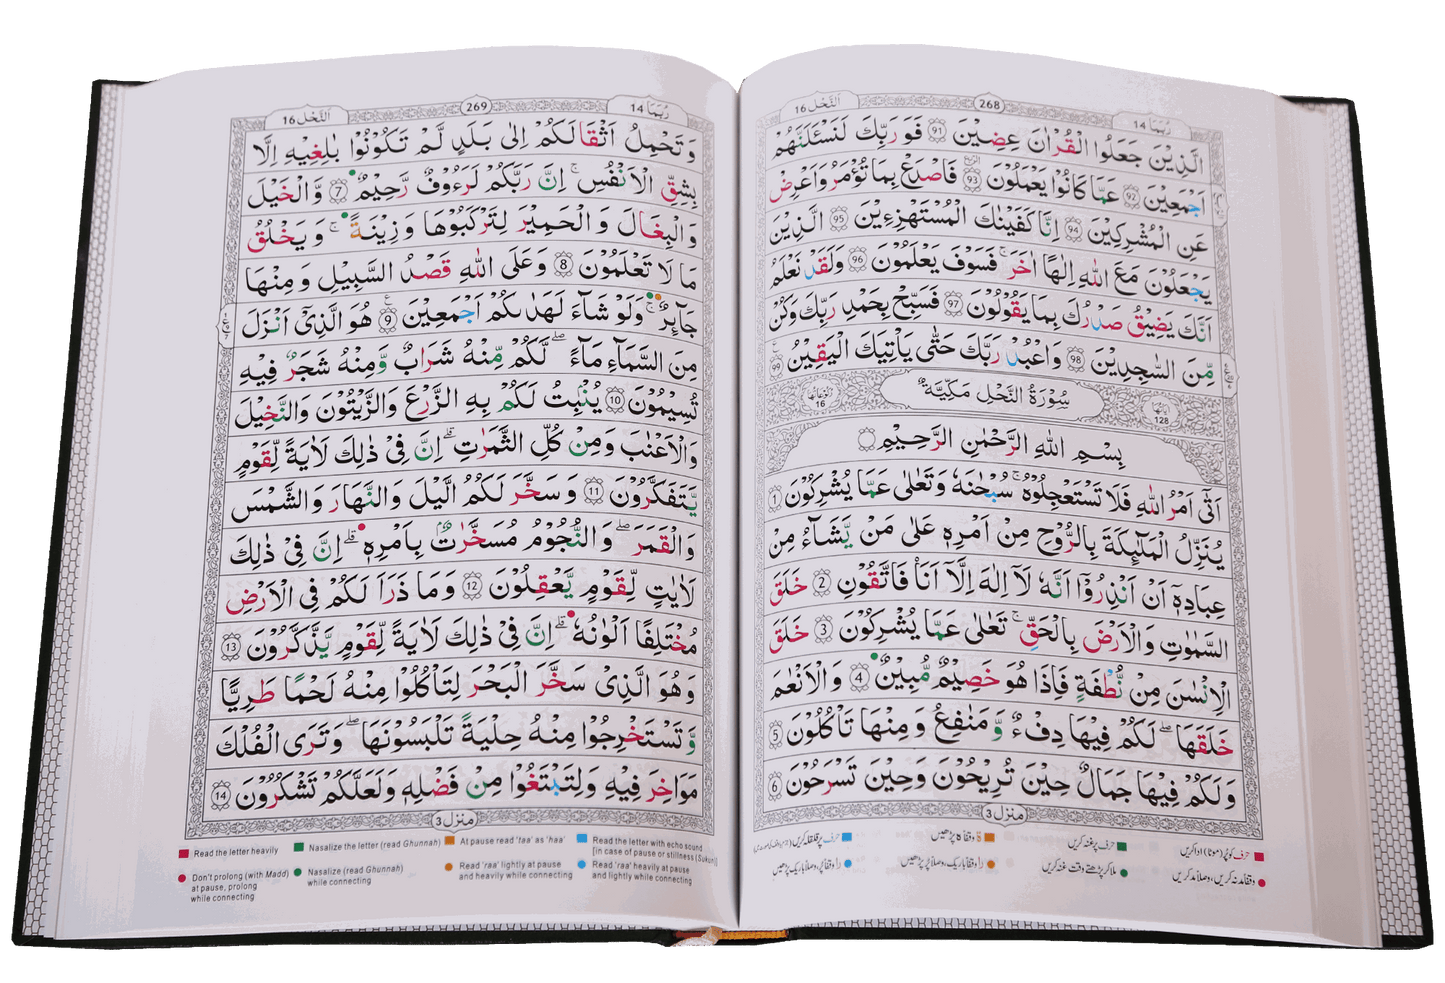 رُبَمَا ١٤
268
اَلنَّحْل 16
الَّذِيْنَ جَعَلُوا الْقُرْاٰنَ عِضِيْنَ 91 فَوَرَبِّكَ لَنَسْـَٔلَنَّهُمْ
اَجْمَعِيْنَ 92 عَمَّا كَانُوْا يَعْمَلُوْنَ 93 فَاصْدَعْ بِمَا تُؤْمَرُ وَاَعْرِضْ
عَنِ الْمُشْرِكِيْنَ 94 اِنَّا كَفَيْنٰكَ الْمُسْتَهْزِءِيْنَ 95 الَّذِيْنَ
يَجْعَلُوْنَ مَعَ اللّٰهِ اِلٰهًا اٰخَرَ ۚ فَسَوْفَ يَعْلَمُوْنَ 96 وَلَقَدْ نَعْلَمُ
اَنَّكَ يَضِيْقُ صَدْرُكَ بِمَا يَقُوْلُوْنَ 97 فَسَبِّحْ بِحَمْدِ رَبِّكَ وَكُنْ
مِّنَ السّٰجِدِيْنَ 98 وَاعْبُدْ رَبَّكَ حَتّٰى يَاْتِيَكَ الْيَقِيْنُ 99
اٰيَاتُهَا 128 سُوْرَةُ النَّحْلِ مَكِّيَّةٌ رُكُوْعَاتُهَا 16
بِسْمِ اللّٰهِ الرَّحْمٰنِ الرَّحِيْمِ
اَتٰٓى اَمْرُ اللّٰهِ فَلَا تَسْتَعْجِلُوْهُ ۚ سُبْحٰنَهٗ وَتَعٰلٰى عَمَّا يُشْرِكُوْنَ 1
يُنَزِّلُ الْمَلٰٓئِكَةَ بِالرُّوْحِ مِنْ اَمْرِهٖ عَلٰى مَنْ يَّشَآءُ مِنْ
عِبَادِهٖٓ اَنْ اَنْذِرُوْٓا اَنَّهٗ لَآ اِلٰهَ اِلَّآ اَنَا فَاتَّقُوْنِ 2 خَلَقَ
السَّمٰوٰتِ وَالْاَرْضَ بِالْحَقِّ ۚ تَعٰلٰى عَمَّا يُشْرِكُوْنَ 3 خَلَقَ
الْاِنْسٰنَ مِنْ نُّطْفَةٍ فَاِذَا هُوَ خَصِيْمٌ مُّبِيْنٌ 4 وَالْاَنْعَمَ
خَلَقَهَا ۖ لَكُمْ فِيْهَا دِفْءٌ وَّ مَنٰفِعُ وَمِنْهَا تَاْكُلُوْنَ 5
وَلَكُمْ فِيْهَا جَمَالٌ حِيْنَ تُرِيْحُوْنَ وَحِيْنَ تَسْرَحُوْنَ 6
منزل 3
رُبَمَا 14
269
اَلنَّحْل 16
وَتَحْمِلُ اَثْقَالَكُمْ اِلٰى بَلَدٍ لَّمْ تَكُوْنُوْا بٰلِغِيْهِ اِلَّا
بِشِقِّ الْاَنْفُسِ ۚ اِنَّ رَبَّكُمْ لَرَءُوْفٌ رَّحِيْمٌ 7 وَّالْخَيْلَ
وَالْبِغَالَ وَالْحَمِيْرَ لِتَرْكَبُوْهَا وَزِيْنَةً ۚ وَيَخْلُقُ
مَا لَا تَعْلَمُوْنَ 8 وَعَلَى اللّٰهِ قَصْدُ السَّبِيْلِ وَمِنْهَا
جَآئِرٌ ۚ وَلَوْ شَآءَ لَهَدٰىكُمْ اَجْمَعِيْنَ 9 هُوَ الَّذِيْٓ اَنْزَلَ
مِنَ السَّمَآءِ مَآءً ۖ لَّكُمْ مِّنْهُ شَرَابٌ وَّمِنْهُ شَجَرٌ فِيْهِ
تُسِيْمُوْنَ 10 يُنْۢبِتُ لَكُمْ بِهِ الزَّرْعَ وَالزَّيْتُوْنَ وَالنَّخِيْلَ
وَالْاَعْنٰبَ وَمِنْ كُلِّ الثَّمَرٰتِ ۗ اِنَّ فِيْ ذٰلِكَ لَاٰيَةً لِّقَوْمٍ
يَّتَفَكَّرُوْنَ 11 وَسَخَّرَ لَكُمُ الَّيْلَ وَالنَّهَارَ وَالشَّمْسَ
وَالْقَمَرَ ۖ وَالنُّجُوْمُ مُسَخَّرٰتٌۢ بِاَمْرِهٖ ۗ اِنَّ فِيْ ذٰلِكَ
لَاٰيٰتٍ لِّقَوْمٍ يَّعْقِلُوْنَ 12 وَمَا ذَرَاَ لَكُمْ فِي الْاَرْضِ
مُخْتَلِفًا اَلْوٰنُهٗ ۗ اِنَّ فِيْ ذٰلِكَ لَاٰيَةً لِّقَوْمٍ يَّذَّكَّرُوْنَ 13
وَهُوَ الَّذِيْ سَخَّرَ الْبَحْرَ لِتَاْكُلُوْا مِنْهُ لَحْمًا طَرِيًّا
وَّتَسْتَخْرِجُوْا مِنْهُ حِلْيَةً تَلْبَسُوْنَهَا ۖ وَتَرَى الْفُلْكَ
مَوَاخِرَ فِيْهِ وَلِتَبْتَغُوْا مِنْ فَضْلِهٖ وَلَعَلَّكُمْ تَشْكُرُوْنَ 14
منزل 3
Read the letter heavily
Nasalize the letter (read Ghunnah)
At pause read 'taa' as 'haa'
Read the letter with echo sound
[in case of pause or stillness (Sukun)]
Don't prolong (with Madd)
at pause, prolong
while connecting
Nasalize (read Ghunnah)
while connecting
Read 'raa' lightly at pause
and heavily while connecting
Read 'raa' heavily at pause
and lightly while connecting